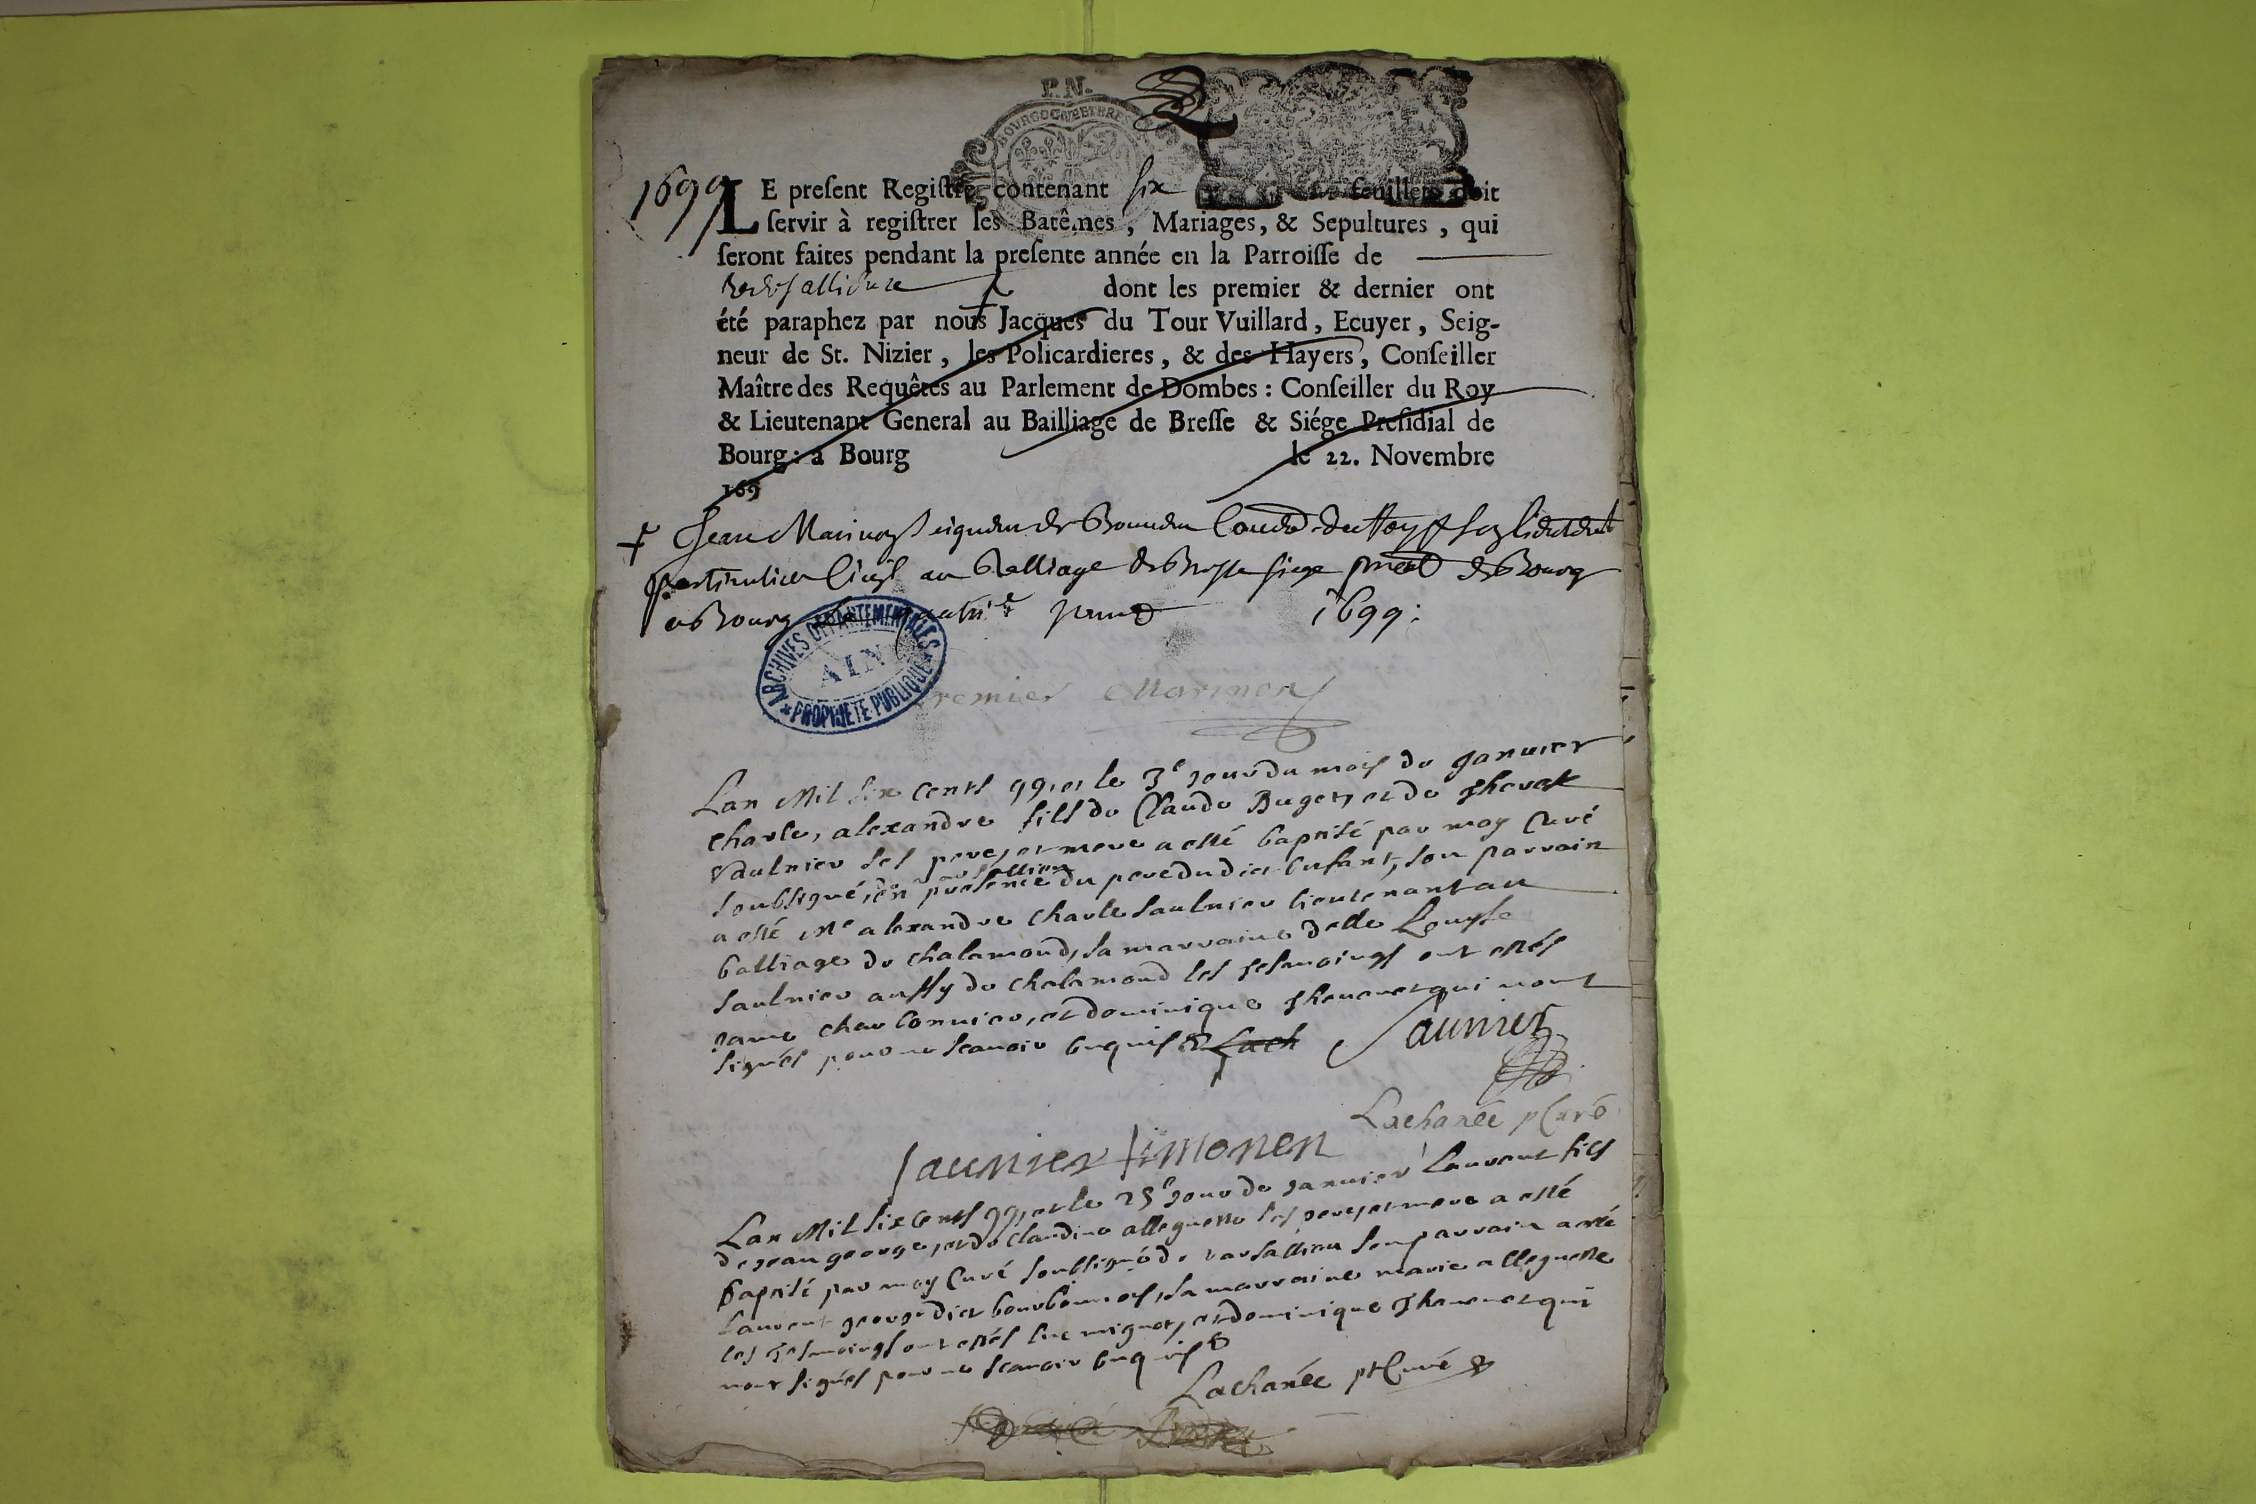 P. N.
BOURGOGNE ET BRES
1699
LE preſent Regiſtre contenant six feuillets doit
ſervir à regiſtrer les Batêmes, Mariages, & Sepultures, qui
ſeront faites pendant la preſente année en la Parroiſſe de
dont les premier & dernier ont
été paraphez par nous Jacques du Tour Vuillard, Ecuyer, Seig-
neur de St. Nizier, les Policardieres, & des Hayers, Conſeiller
Maître des Requêtes au Parlement de Dombes: Conſeiller du Roy
& Lieutenant General au Bailliage de Breſſe & Siége Preſidial de
Bourg: à Bourg le 22. Novembre
169
Jean Marinon Seigneur de
particulier Civil au Balliage de Bresse siege de Bourg
a Bourg 1699:
ARCHIVES DEPARTEMENTALES
AIN
PROPRIETE PUBLIQUE
Premier Marinon
Lan Mil six cents 99, et le 3e jour du mois de Janvier
charle, alexandre fils de Claude Buget, et de
saulnier ses pere, et mere a esté baptisé par moy Curé
soubsigné, en presence du pere dudict enfant, son parrain
a esté Me alexandre charle saulnier lieutenant au
balliage de chalamond, sa marraine delle Louyse
saulnier aussy de chalamond les tesmoings ont estés
charbonnier, et dominique thevenet qui n'ont
signés pour ne scavoir enquis & Lach
Saunier
Lachanée p Curé
saunier simonen
Lan Mil six cents 99, et le 25e jour de janvier Laurent fils
de jean george, et de claudine alleguette ses pere, et mere a esté
baptisé par moy Curé soubsigné de son parrain a esté
Laurent george dict sa marraine marie alleguette
les tesmoings ont estés luc mignot, et dominique thevenet qui
n'ont signés pour ne scavoir enquis &
Lachanée pt Curé